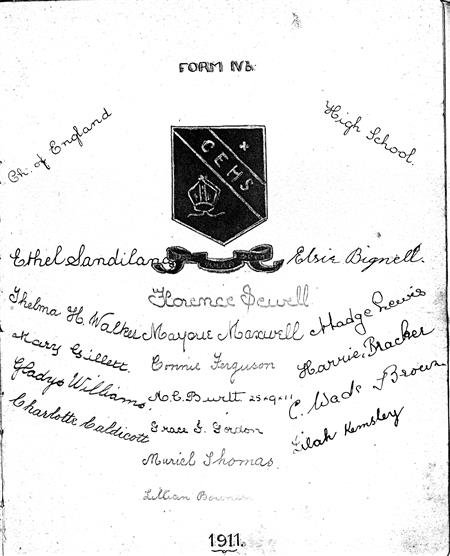 FORM IVb.
Ch. of England
High School.
CEHS
Ethel Sandilands
Elsie Bignell.
Florence Sewell
Thelma H. Walker
Mayorie Maxwell
Madge Lewis
Mary Gillett.
Connie Ferguson
Harrie Bracker
Gladys Williams,
A.C. Burtt. 25.9.11
C. Wade Brown
Charlotte Caldicott
Grace E. Gordon
Lilah Kemsley
Muriel Thomas.
Lillian
1911.